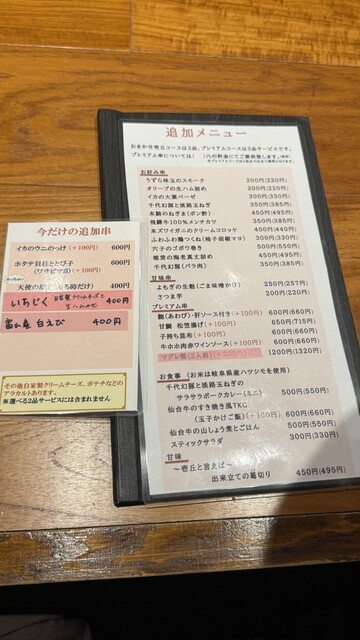 追加メニュー
おまかせ壱丘コースは2品、プレミアムコースは3品サービスです。
プレミアム串については( )内の料金にてご提供致します。
お好み串
うずら味玉のスモーク 200円(220円)
オリーブの生ハム詰め 200円(220円)
イカの大葉ベーゼ 300円(330円)
千代幻豚と淡路玉ねぎ 350円(385円)
本鮪のねぎま(ポン酢) 450円(495円)
飛騨牛100%メンチカツ 350円(385円)
本ズワイガニのクリームコロッケ 400円(440円)
ふわふわ鶏つくね(柚子胡椒マヨ) 300円(330円)
穴子のゴボウ巻き 500円(550円)
椎茸の海老真丈詰め 450円(495円)
千代幻豚(バラ肉) 350円(385円)
甘味串
よもぎの生麩(ごま味噌かけ) 250円(257円)
さつま芋 200円(220円)
プレミアム串
鮑(あわび)・肝ソース付き(+100円) 600円(660円)
甘鯛 松笠揚げ(+100円) 600円(660円)
子持ち昆布(+100円) 600円(660円)
牛ホホ肉赤ワインソース(+100円) 600円(660円)
マグレ鴨(2人前)(+200円) 1200円(1320円)
お食事 (お米は岐阜県産ハツシモを使用)
千代幻豚と淡路玉ねぎの
サラサラポークカレー(ミニ) 500円(550円)
仙台牛のすき焼き風TKG
(玉子かけご飯)(+100円) 600円(660円)
仙台牛の山しょう煮とごはん 500円(550円)
スティックサラダ 300円(330円)
甘味
〜壱丘と言えば〜
出来立ての葛切り 450円(495円)
今だけの追加串
イカのウニのっけ(+100円) 600円
ホタテ貝柱ととび子 600円
(ワサビマヨ)(+100円)
400円
いちじく 自家製クリームチーズと 400円
生ハムのせ
富山産 白えび 400円
その他自家製クリームチーズ、ポテチなどの
アラカルトあります。
※選べる2品サービスには含まれません